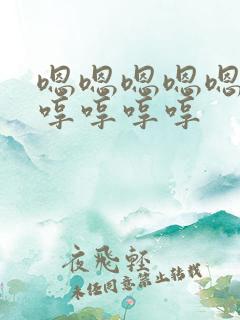 嗯嗯嗯嗯嗯
哼哼哼哼
夜飛輕
未经同意禁止转载